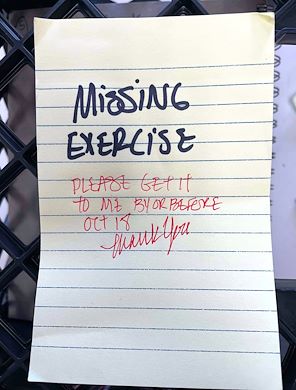 MISSING
EXERCISE
PLEASE GET IT
TO ME BY OR BEFORE
OCT 18
Thank You